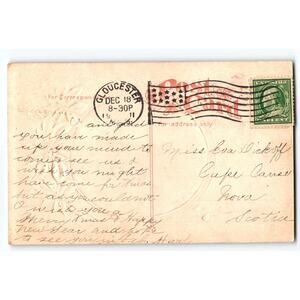 For Correspondence
POST CARD
For address only.
GLOUCESTER
DEC 18
8-30P
11
and
your hair made
up your mind to
come see us I
wish you might
have come for Xmas
but as you couldnt
I wish you a
Merry Xmas & Happy
New Year and hope
to see you
Miss Eva
Cape Canso
Nova
Scotia